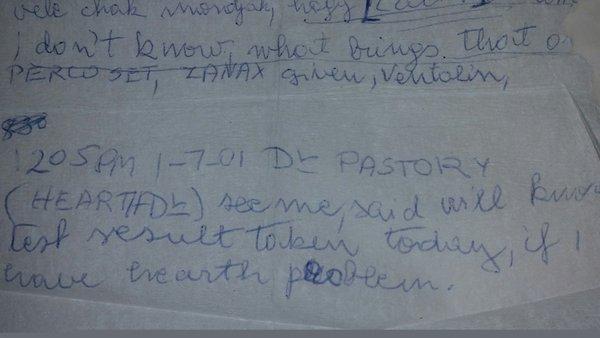 vele chak mondjak, hogy
i don't know, what brings. that o
PERCOSET, ZANAX given, Ventolin,
1205PM 1-7-01 Dr PASTORY
(HEARTH Dr) see me, said will know
test result taken today, if I
have hearth problem.